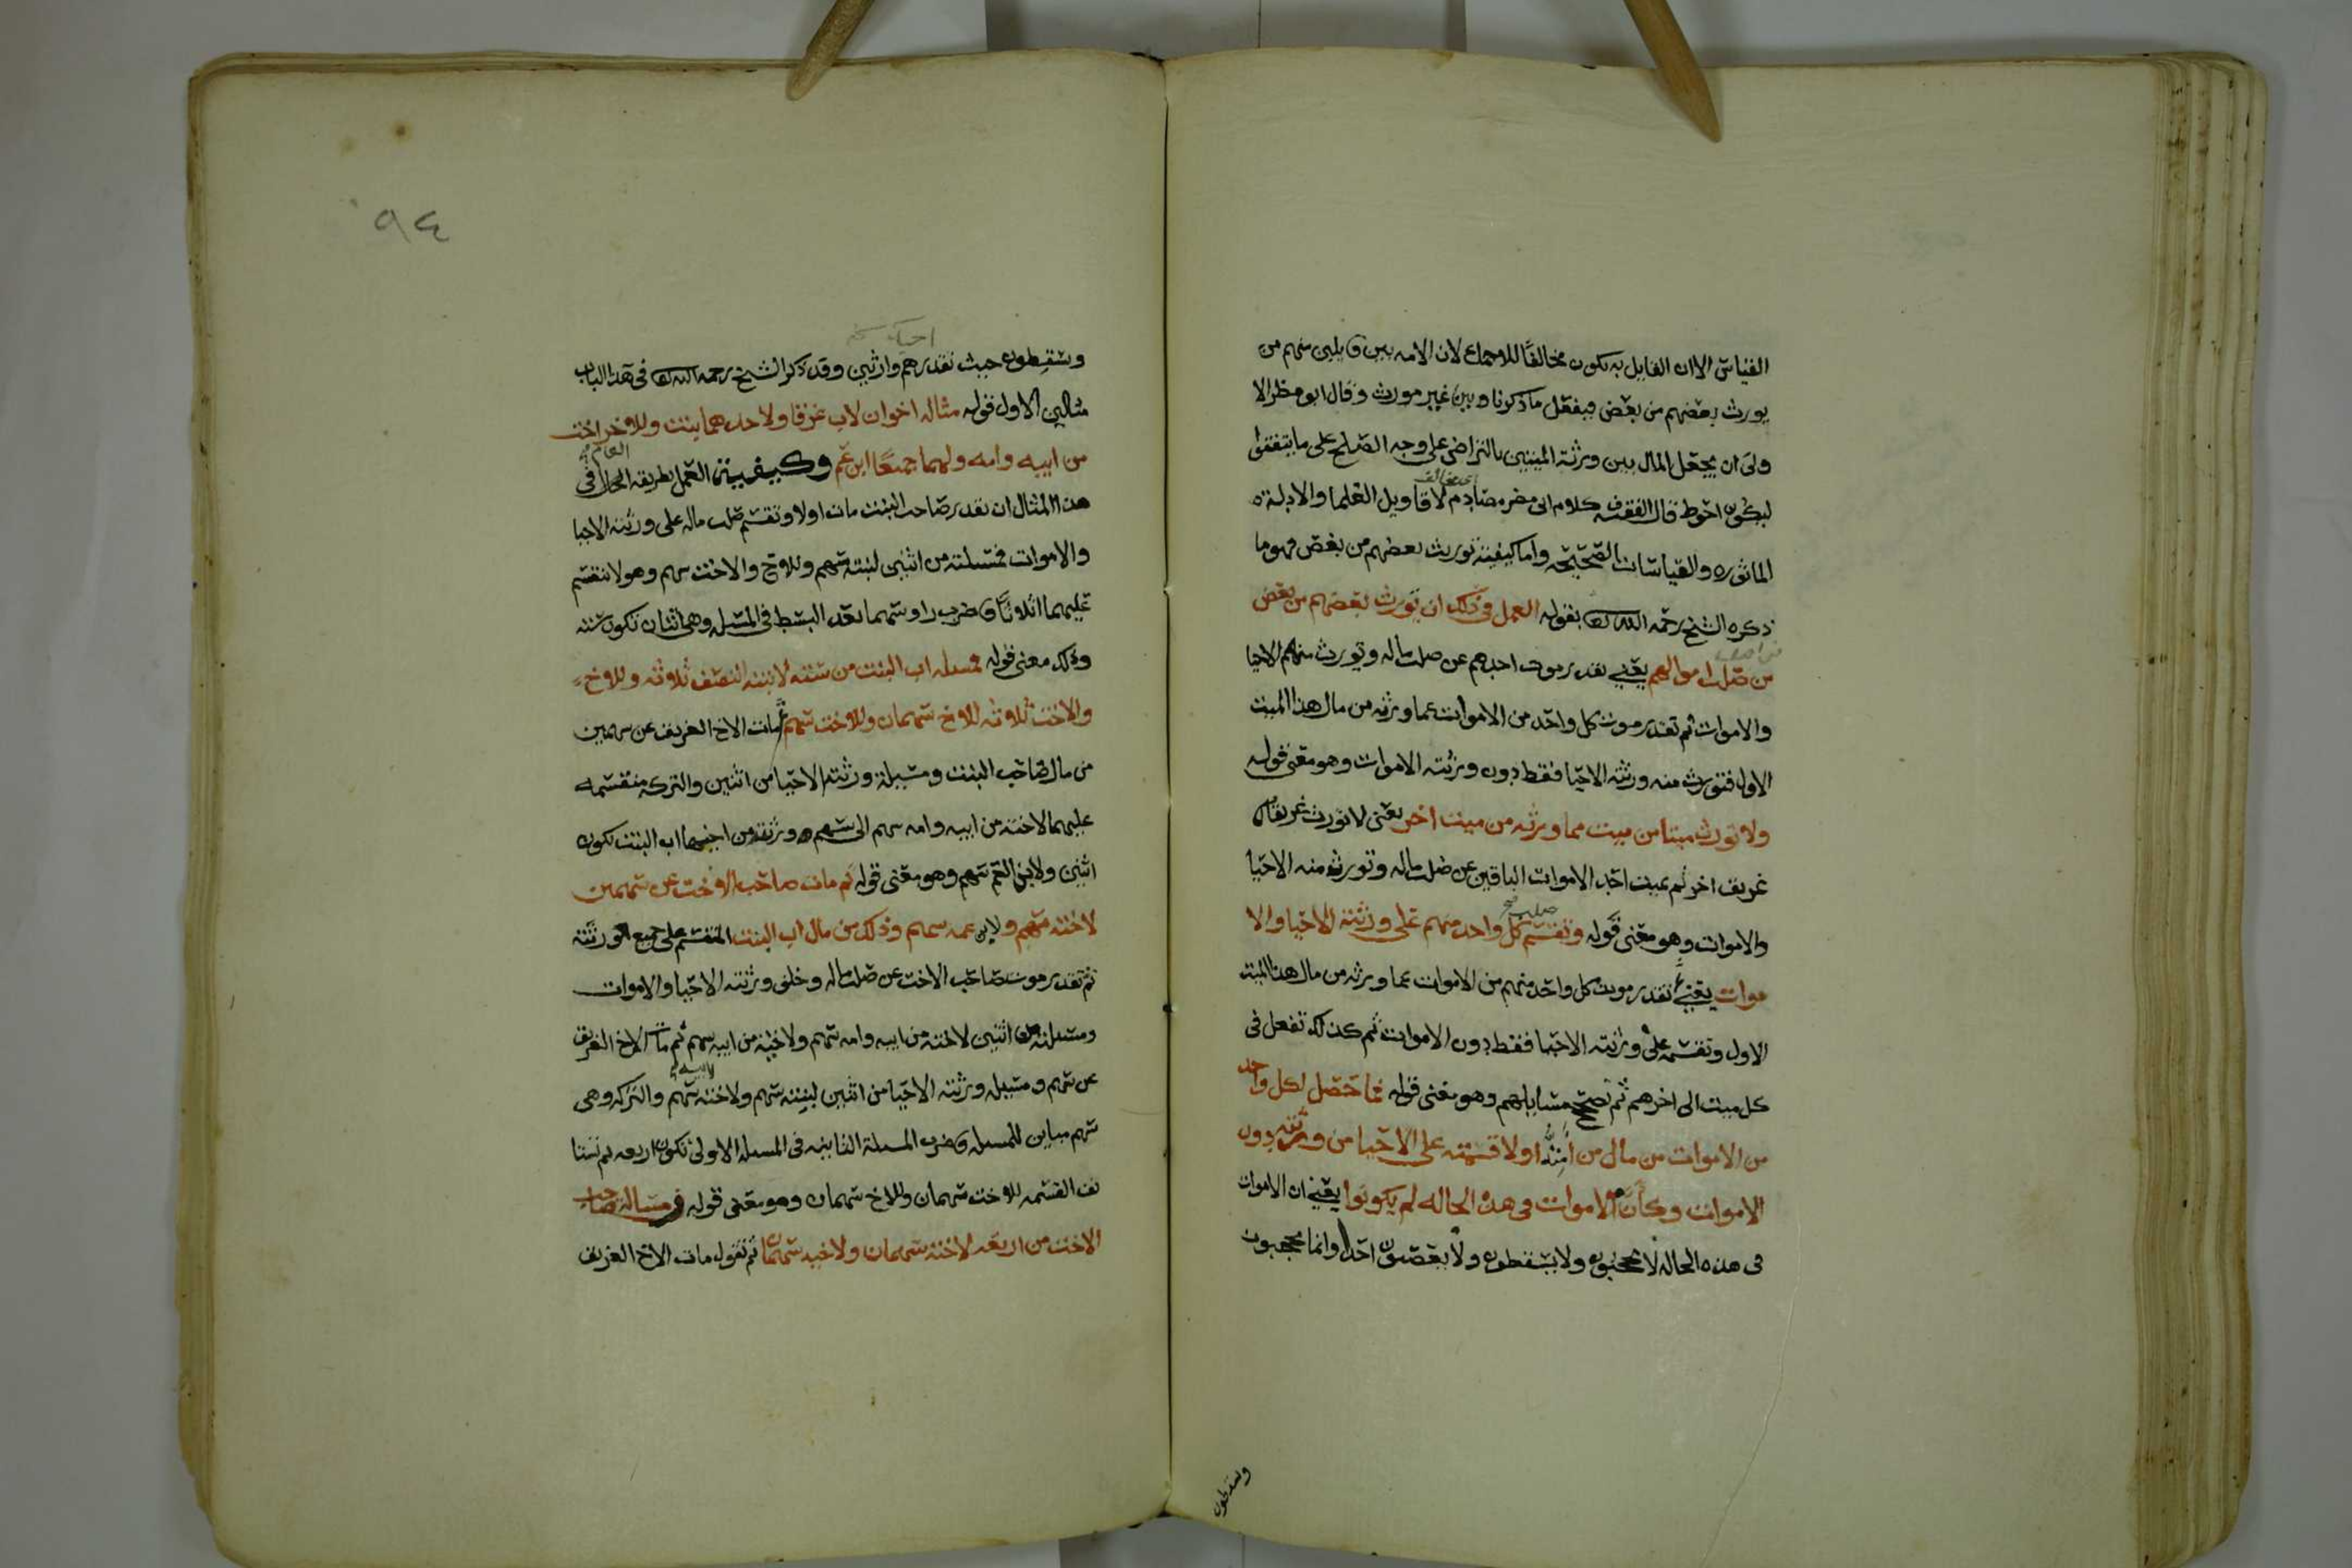 القياس الا ان القايل به يكون مخالفًا للاجماع لان الامه بين قايلين منهم من
يورث بعضهم من بعض فيفعل ما ذكرنا وبين غير مورث وقال ابو مضر الا
ولى ان يجعل المال بين ورثة الميتين بالتراضي على وجه الصلح على ما يتفقوا
ليكون احوط قال الفقيه كلام ابي مضر مصادم لاقاويل العلما والادلة
الماثوره والقياسات الصحيحه واما كيفية توريث بعضهم من بعض فهو ما
ذكره الشيخ رحمه الله بقوله العمل في ذلك ان تورث بعضهم من بعض
من صلب اموالهم يعني تقدر موت احدهم عن صلب ماله وتورث منهم الاحيا
والاموات ثم تقدر موت كل واحد من الاموات عما ورثه من مال هذا الميت
الاول فتورث منه ورثته الاحيا فقط دون ورثته الاموات وهو معنى قوله
ولا تورث ميتا من ميت مما ورثه من ميت اخر يعني لا تورث غريقا من
غريق اخر ثم يميت احد الاموات الباقين عن صلب ماله وتورث منه الاحيا
والاموات وهو معنى قوله وتقسم كل واحد منهم على ورثته الاحيا والا
موات يعني تقدر موت كل واحد منهم من الاموات عما ورثه من مال هذا الميت
الاول وتقسمه على ورثته الاحيا فقط دون الاموات ثم كذلك تفعل في
كل ميت الى اخرهم ثم تصحح مسايلهم وهو معنى قوله فما حصل لكل واحد
من الاموات من مال من اولا قسمته على الاحيا من ورثته دون
الاموات وكان الاموات في هذه الحاله لم يكونوا يعني ان الاموات
في هذه الحاله لا يحجبون ولا يسقطون ولا يعصبون احدا وانما يحجبون
ويسقطون
٩٤
ويسقطون حيث تقدرهم وارثين وقد ذكر الشيخ رحمه الله في هذا الباب
مثالين الاول قوله مثاله اخوان لاب غرقا ولاحدهما بنت وللاخر اخت
من ابيه وامه ولهما جميعًا ابن عم وكيفية العمل بطريقه الحال في
هذا المثال ان تقدر صاحب البنت مات اولا وتقسم صلب ماله على ورثته الاحيا
والاموات فمسلته من اثنين لبنته سهم وللاخ والاخت سهم وهو لا ينقسم
عليهما اثلاثًا فاضرب راوسهما بعد البسط في المسله وهي اثنان تكون سته
وذلك معنى قوله فمسله اب البنت من سته لابنته النصف ثلاثه وللاخ
والاخت ثلاثه للاخ سهمان وللاخت سهم ثم مات الاخ الغريق عن سهمين
من مال صاحب البنت ومسيلة ورثته الاحيا من اثنين والتركه منقسمه
عليهما لاخته من ابيه وامه سهم الى سهم ورثته من اخيها اب البنت تكون
اثنين ولابن العم سهم وهو معنى قوله ثم مات صاحب الاخت عن سهمين
لاخته سهم ولابن عمه سهم وذلك من مال اب البنت المنقسم على جميع الورثة
ثم تقدر موت صاحب الاخت عن صلب ماله وخلف ورثته الاحيا والاموات
ومسلته من اثنين لاخته من ابيه وامه سهم ولاخيه من ابيه سهم ثم مات الاخ الغريق
عن سهم ومسيله ورثته الاحيا من اثنين لبنته سهم ولاخته لابيه سهم والتركه وهي
سهم مباين للمسله فاضرب المسلة الثانيه في المسله الاولى تكون اربعه ثم تستا
نف القسمه للاخت سهمان وللاخ سهمان وهو معنى قوله ومسالة صاحب
الاخت من اربعه لاخته سهمان ولاخيه سهمان ثم تقول مات الاخ الغريق